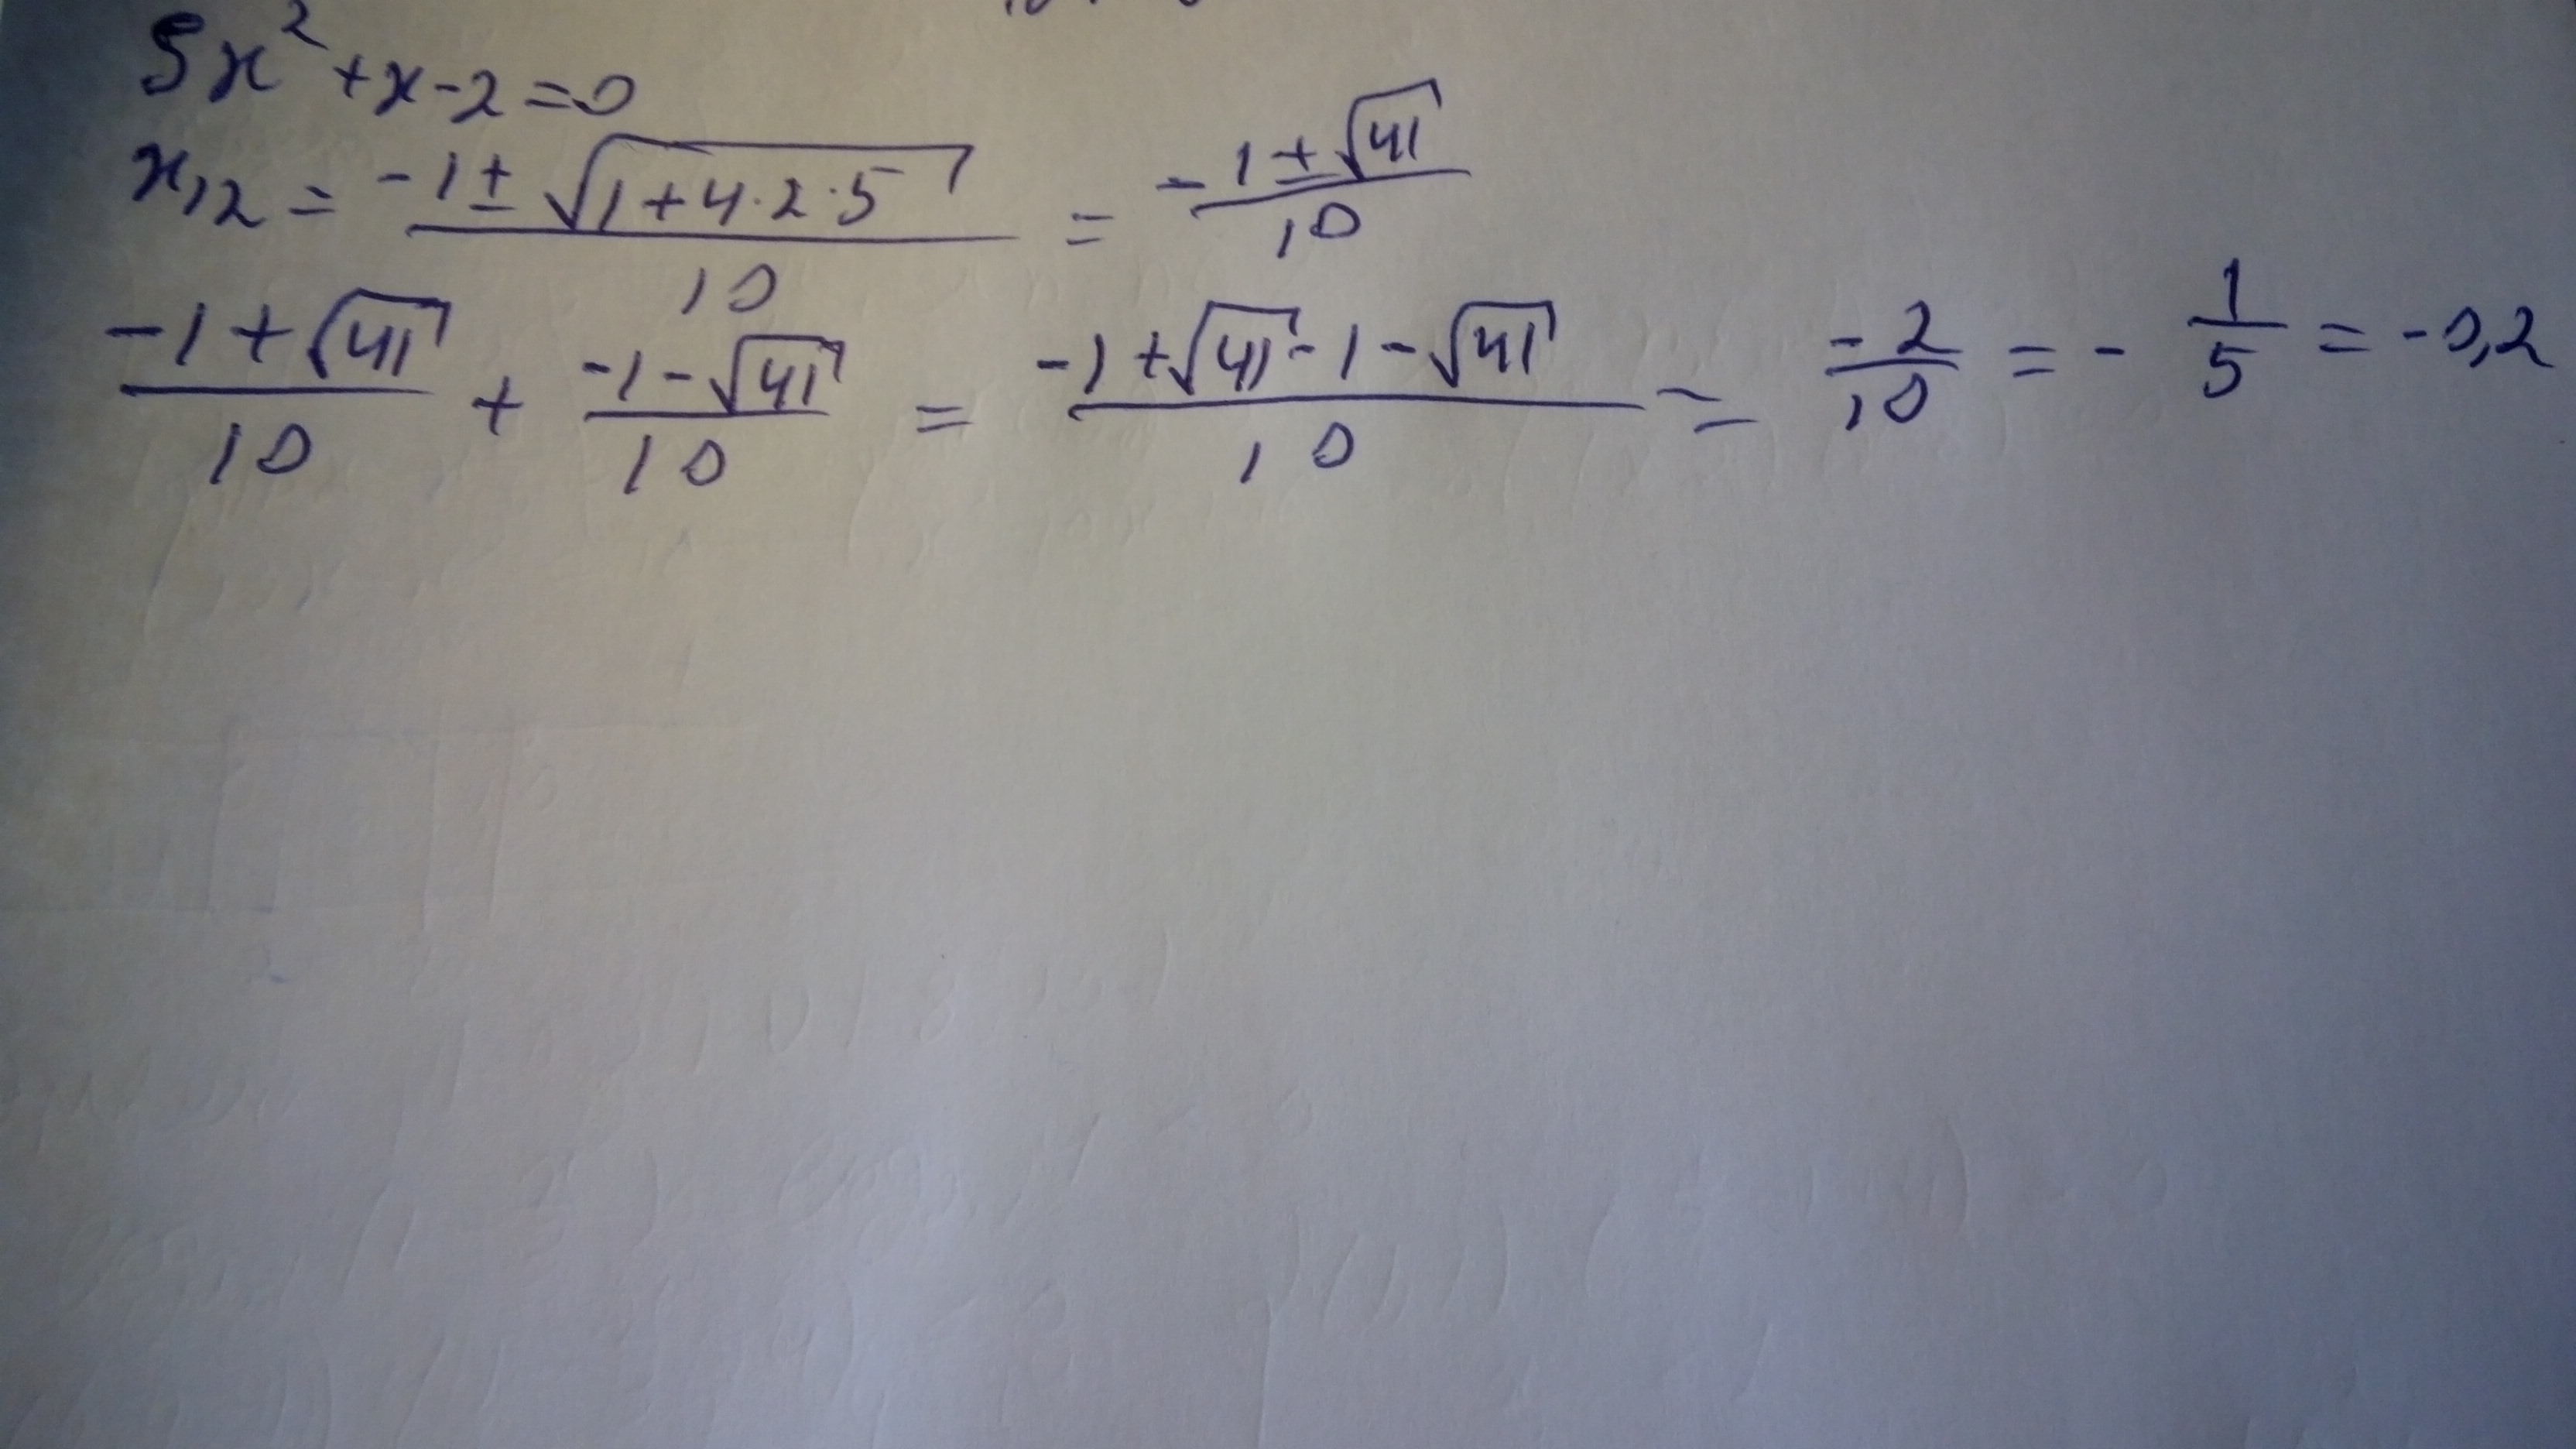 5x² + x - 2 = 0
x₁,₂ = (-1 ± √(1 + 4·2·5))/10 = (-1 ± √41)/10
(-1 + √41)/10 + (-1 - √41)/10 = (-1 + √41 - 1 - √41)/10 = -2/10 = -1/5 = -0,2